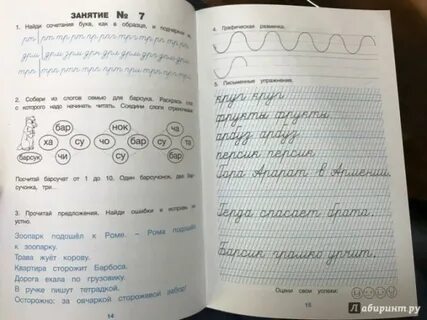 ЗАНЯТИЕ № 7
1. Найди сочетания букв, как в образце, и подчеркни их.
2. Собери из слогов семью для барсука. Раскрась слог, с которого надо начинать читать. Соедини слоги стрелочками.
бар нок ча
ха су чо бар су та
барсук чи су бар
Посчитай барсучат от 1 до 10. Один барсучонок, два барсучонка, три...
3. Прочитай предложения. Найди ошибки и исправь их устно.
Зоопарк подошёл к Роме. – Рома подошёл
к зоопарку.
Трава жуёт корову.
Квартира сторожит Барбоса.
Дорога ехала по грузовику.
В ручке пишут тетрадкой.
Осторожно: за овчаркой сторожевой забор!
14
4. Графическая разминка.
5. Письменные упражнения.
круг круг
фрукты фрукты
арбуз арбуз
персик персик
Гора Арарат в Армении.
Герда спасает брата.
Барсик громко урчит.
Оцени свои успехи:
15
Лабиринт.ру